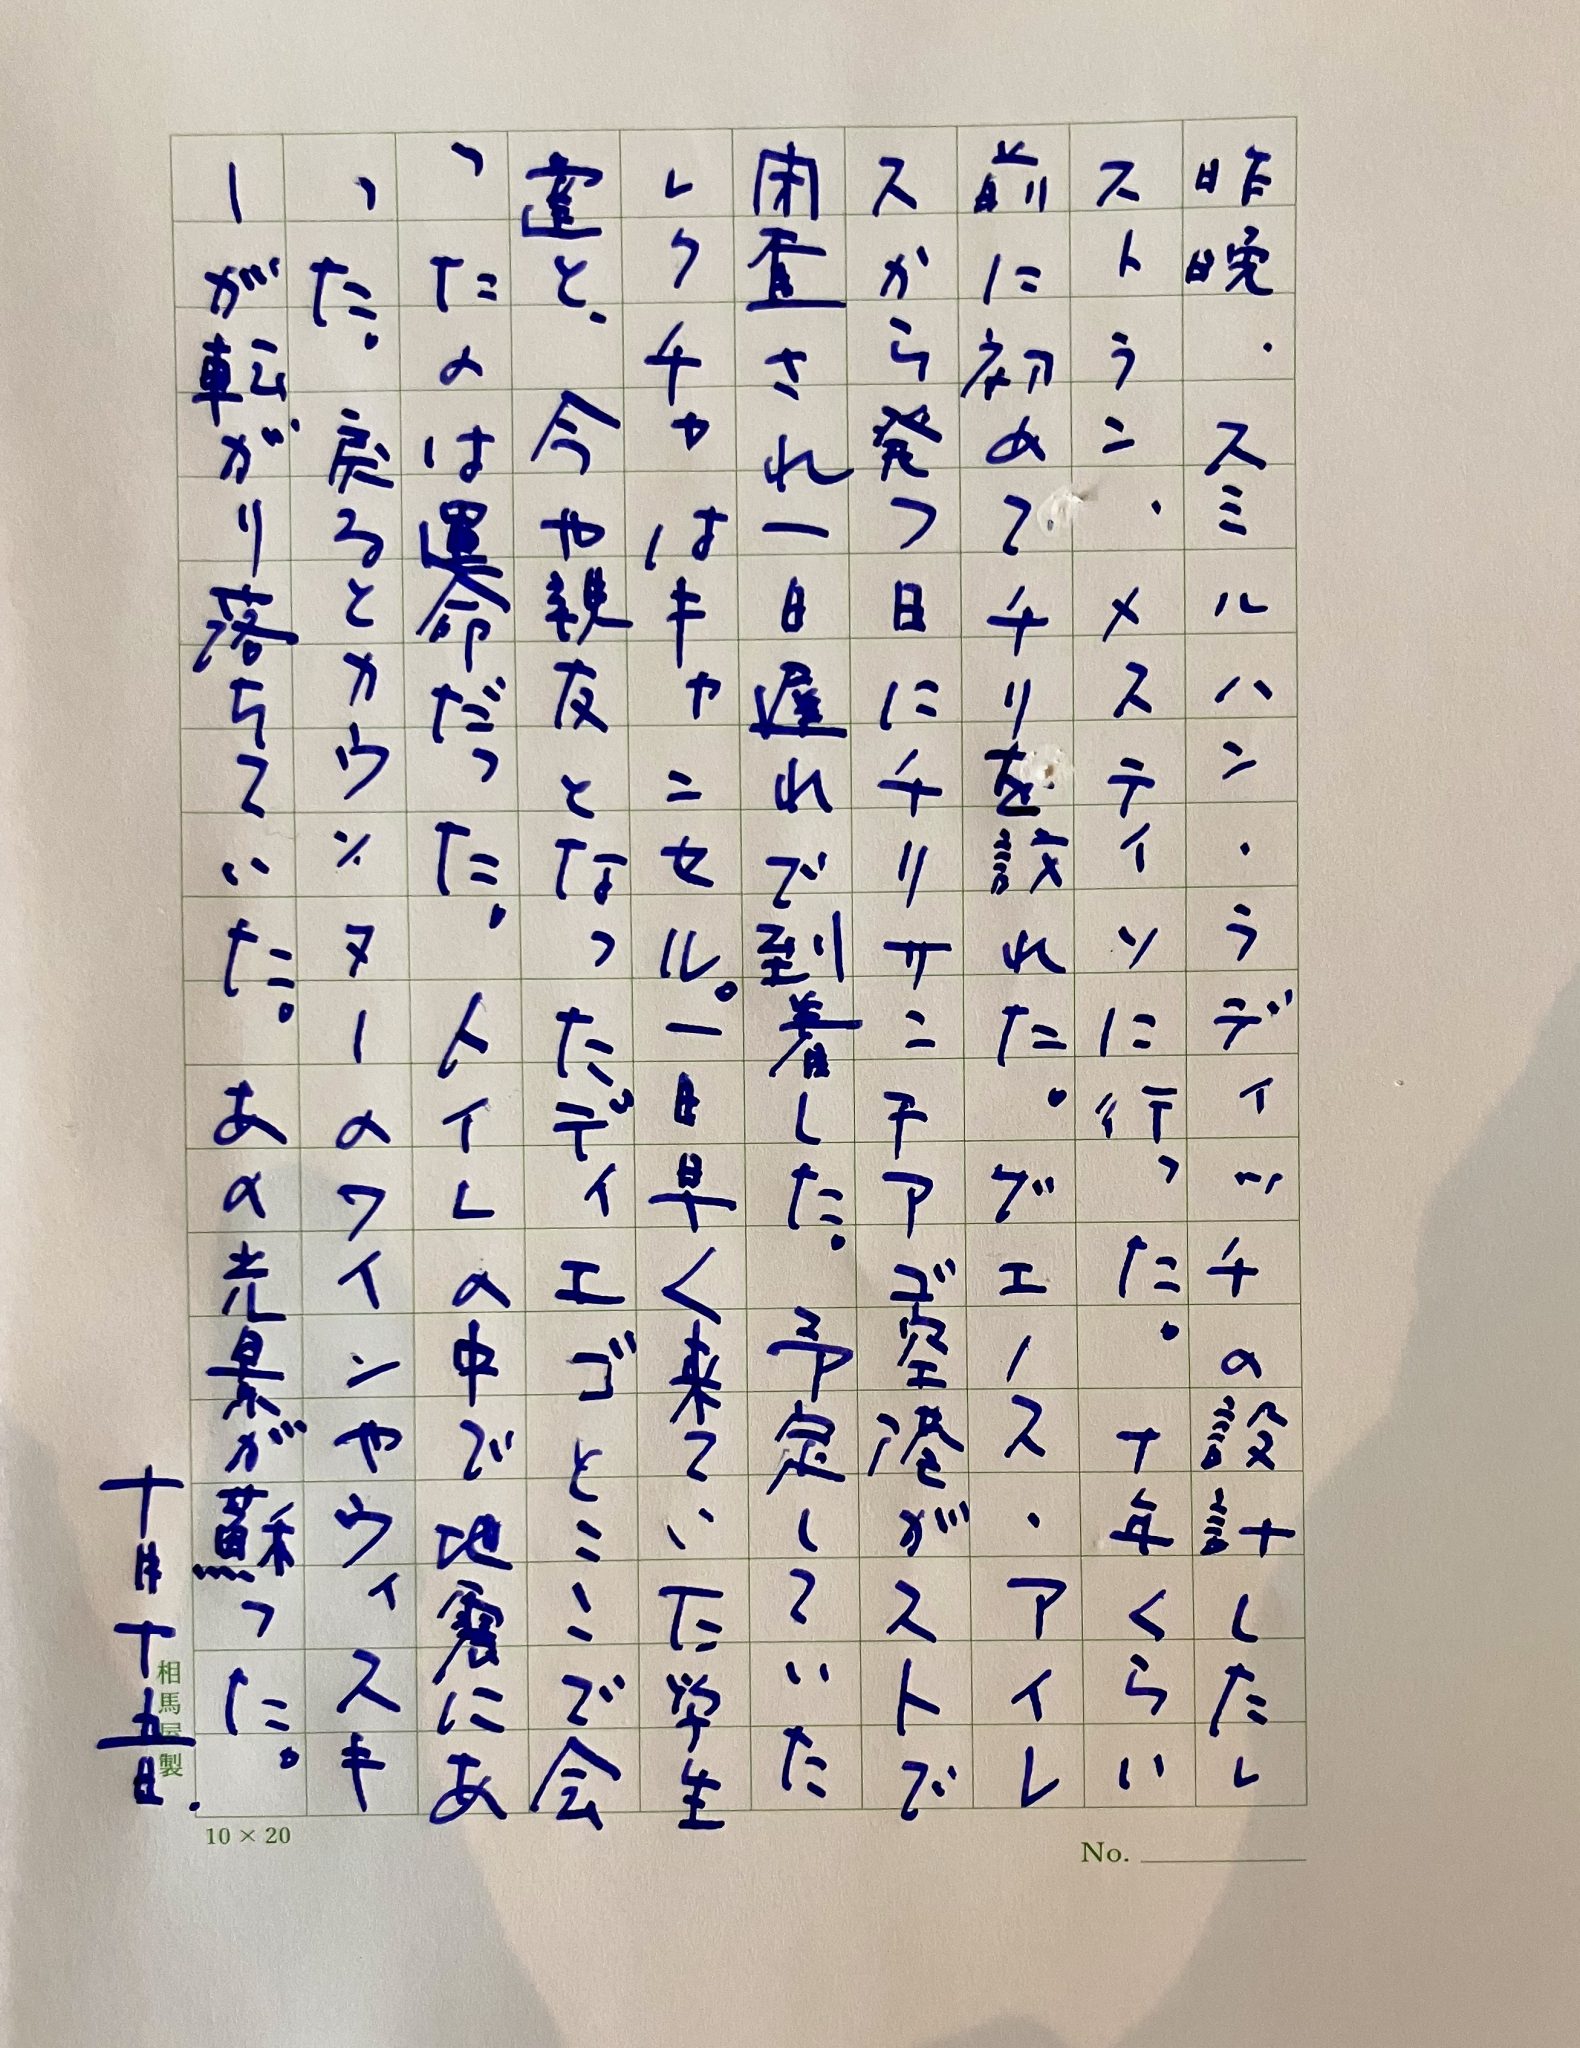 昨晩・スミルハン・ラディッチの設計したレ
ストラン・メスティソに行った。十年くらい
前に初めてチリを訪れた。ブエノス・アイレ
スから発つ日にチリサンチアゴ空港がストで
され一日遅れで到着した。予定していた
レクチャはキャンセル。一日早く来ていた学生
達と、今や親友となったディエゴとここで会
ったのは運命だった。トイレの中で地震にあ
った。戻るとカウンターのワインやウィスキ
ーが転がり落ちていた。あの光景が蘇った。
十月十五日.
相馬屋製
10×20
No.